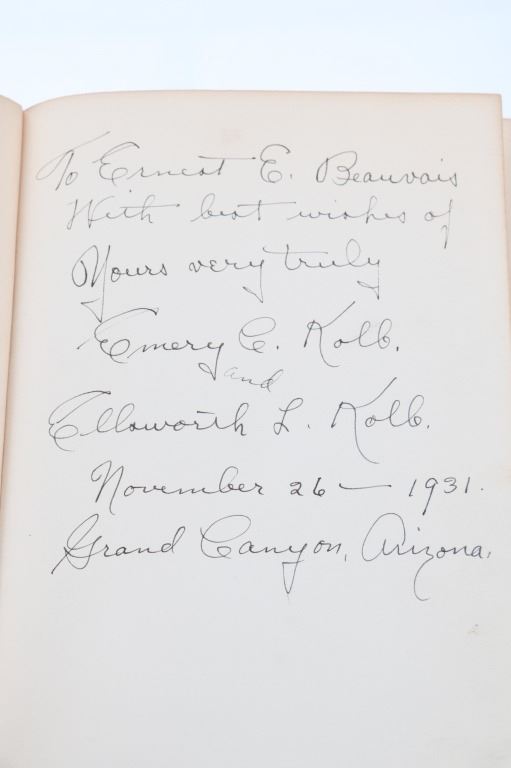 To Ernest E. Beauvais
With best wishes of
Yours very truly
Emery C. Kolb.
and
Ellsworth L. Kolb.
November 26 — 1931.
Grand Canyon, Arizona.